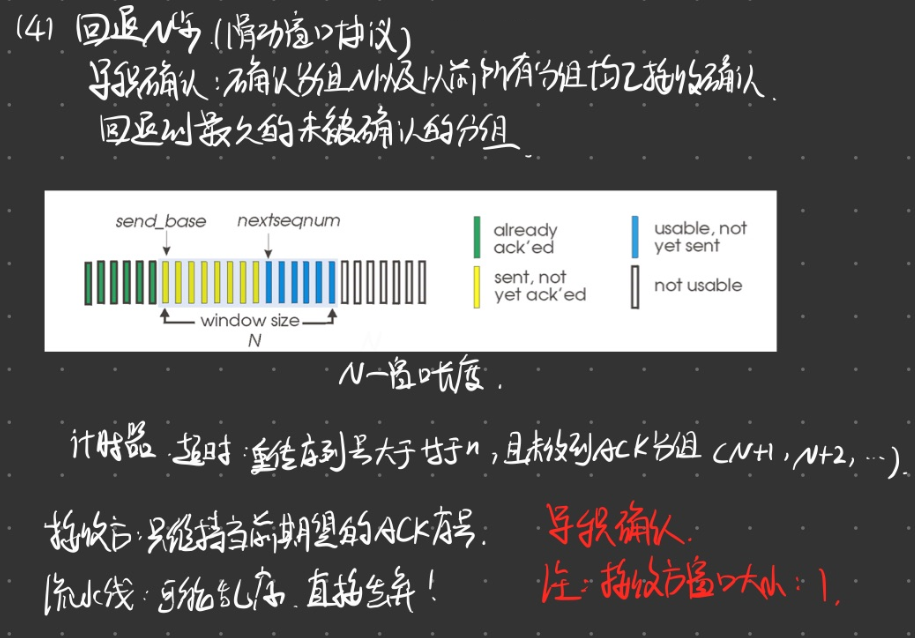 (4) 回退N步 (滑动窗口协议)
累积确认：确认分组N以及以前所有分组均已接收确认.
回退到最久的未被确认的分组.
send_base nextseqnum
already ack'ed
usable, not yet sent
sent, not yet ack'ed
not usable
window size
N
N—窗口长度.
计时器 超时：重传序列号大于等于n，且未收到ACK分组 (N+1, N+2, …).
接收方：只维持当前期望的ACK序号. 累积确认.
流水线：可能乱序. 直接丢弃！ 注：接收方窗口大小：1.